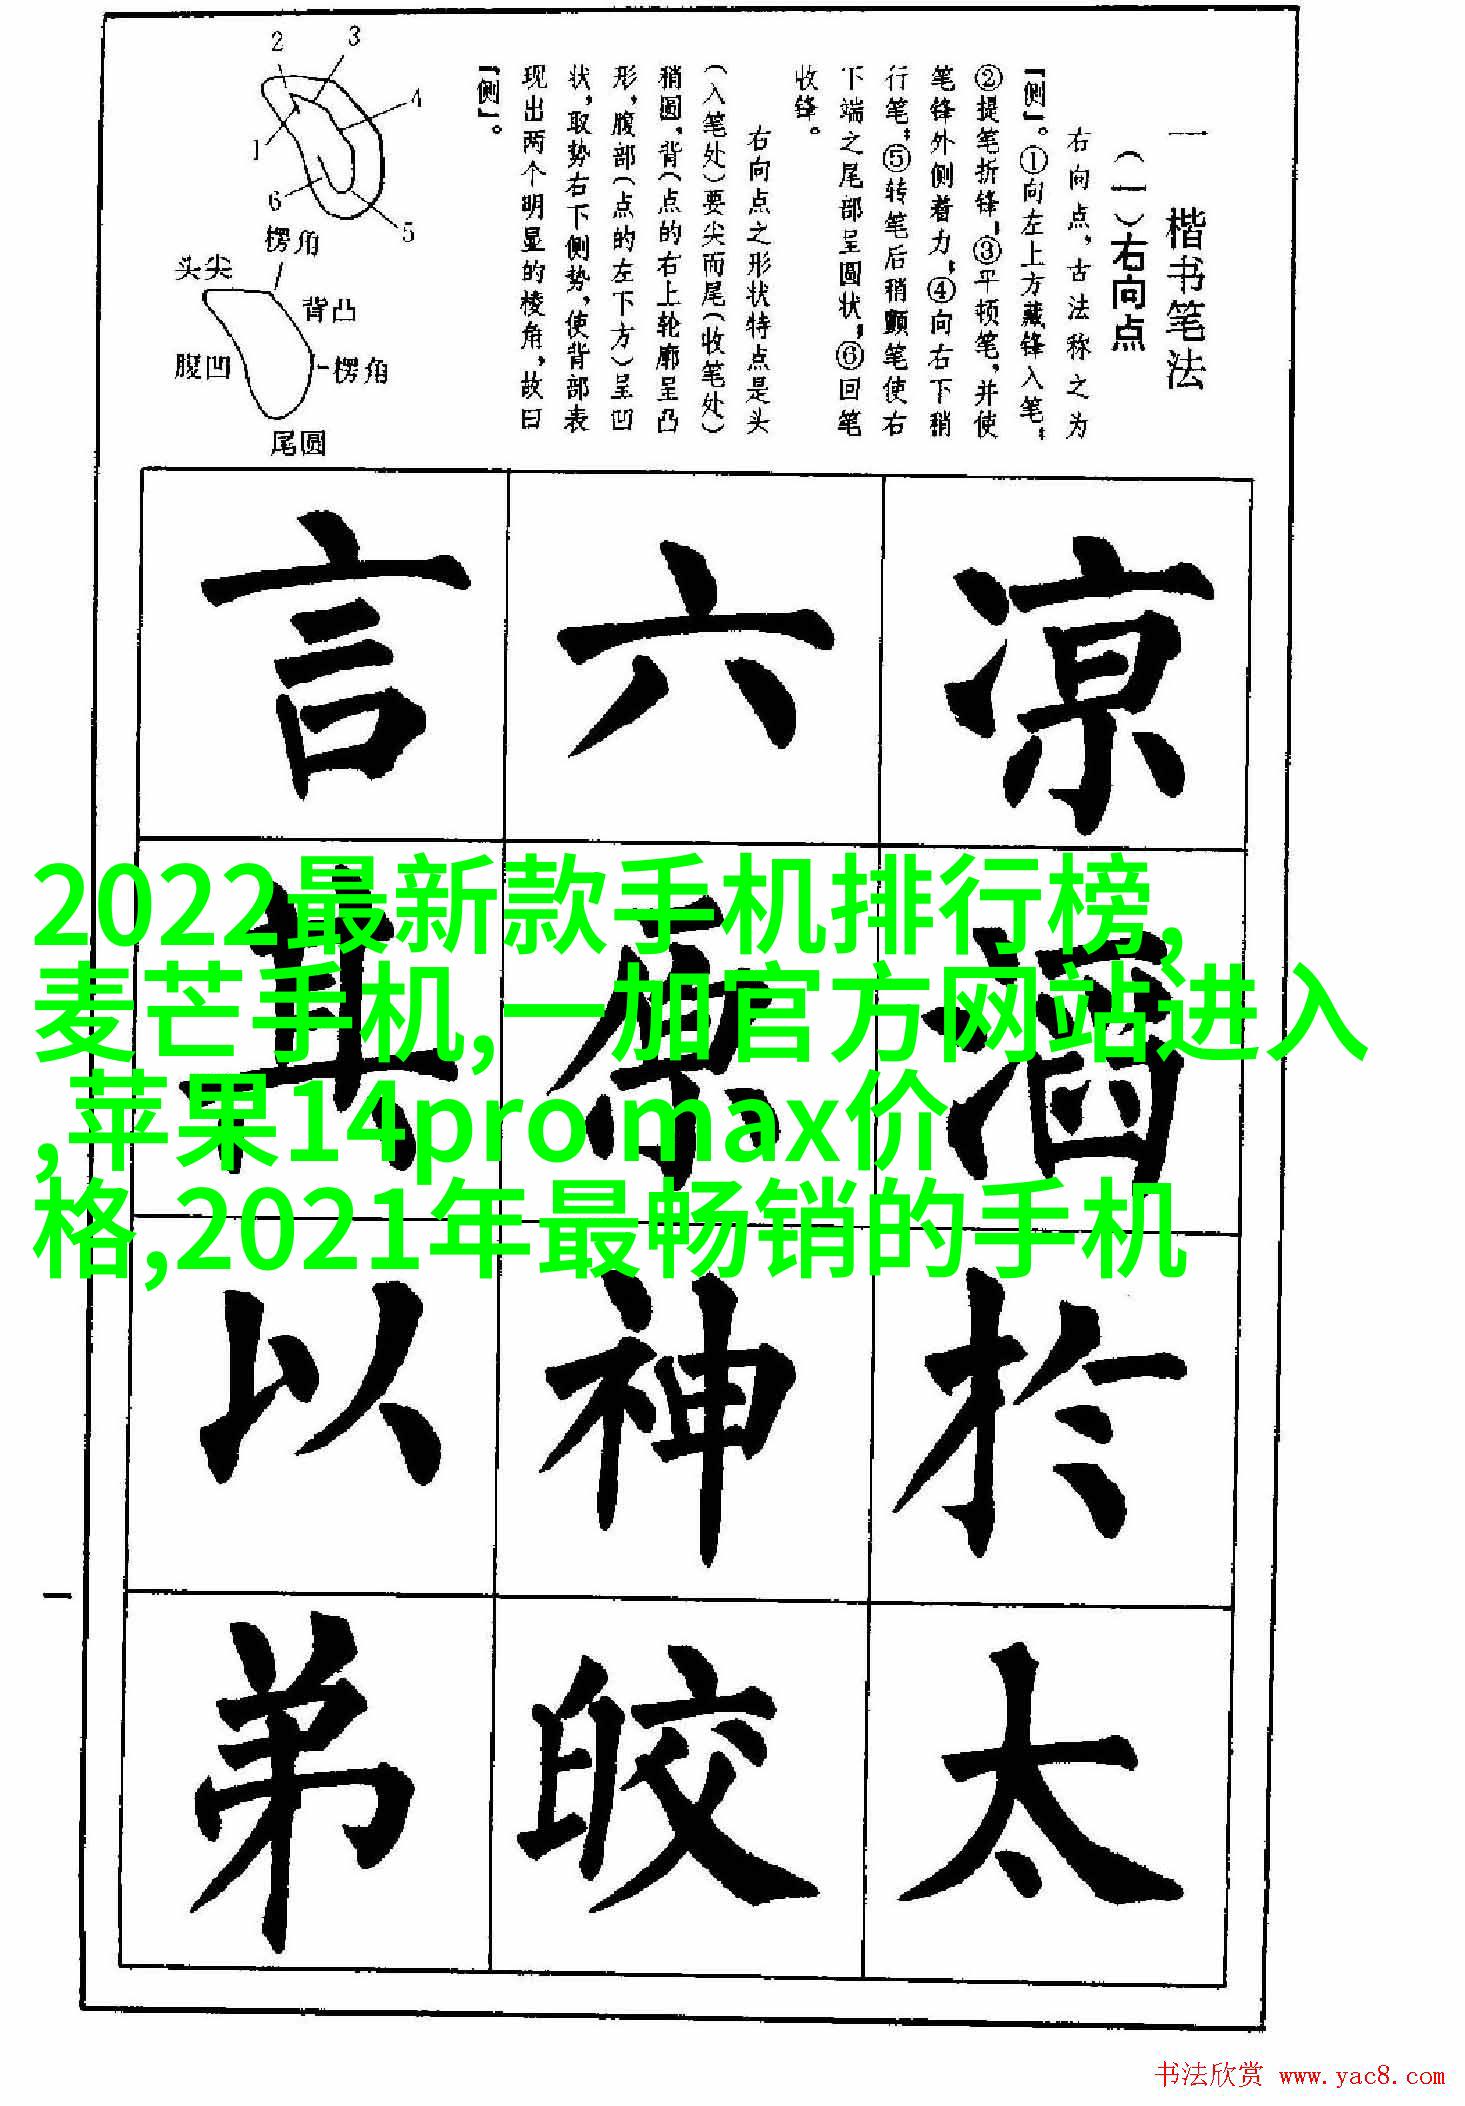 一 楷书笔法
（一）右向点
右向点，古法称之为
「侧」。①向左上方藏锋入笔；
②提笔折锋；③平顿笔，并使
笔锋外侧着力；④向右下稍
行笔；⑤转笔后稍颤笔使右
下端之尾部呈圆状；⑥回笔
收锋。
右向点之形状特点是头
（入笔处）要尖而尾（收笔处）
稍圆，背（点的右上轮廓呈凸
形，腹部（点的左下方）呈凹
状，取势右下侧势，使背部表
现出两个明显的棱角，故曰
「侧」。
2
3
4
1
6
5
楞角
头尖
背凸
腹凹
楞角
尾圆
凉
於
太
六
原
神
皎
言
其
以
弟
2022最新款手机排行榜,
麦芒手机,一加官方网站进入
,苹果14pro max价
格,2021年最畅销的手机
一
书法欣赏 www.yac8.com